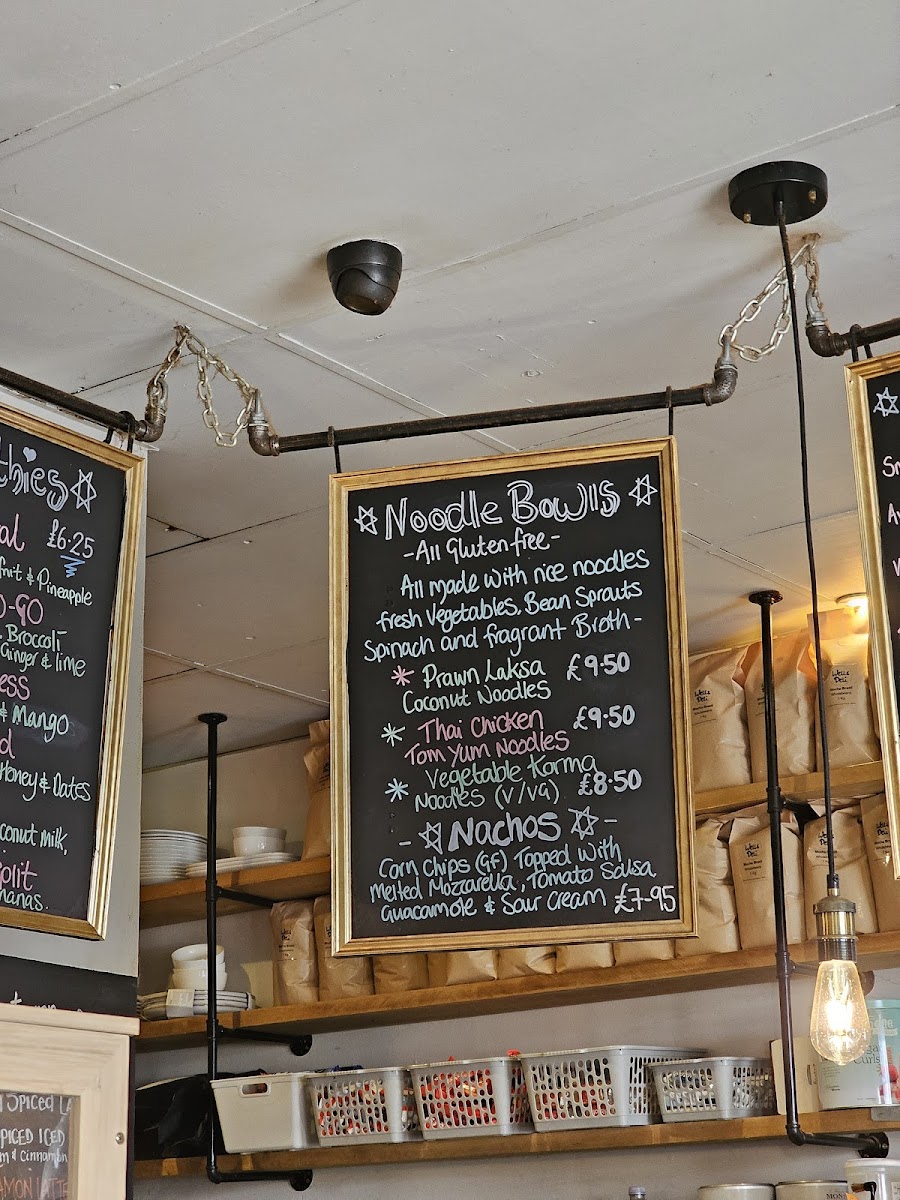 £6.25
& Pineapple
Broccoli
Ginger & lime
& Mango
Honey & Dates
Milk,
Split
Noodle Bowls
- All Gluten free -
All made with rice noodles
fresh vegetables, Bean Sprouts
Spinach and fragrant Broth -
Prawn Laksa £9.50
Coconut Noodles
Thai Chicken £9.50
Tom Yum Noodles
Vegetable Korma
Noodles (V/VG) £8.50
- Nachos -
Corn Chips (Gf) Topped with
Melted Mozzarella, Tomato Salsa
Guacamole & Sour Cream £7.95
WELLS
DELI
WELLS
DELI
WELLS
DELI
SPICED
SPICED ICED
& Cinnamon